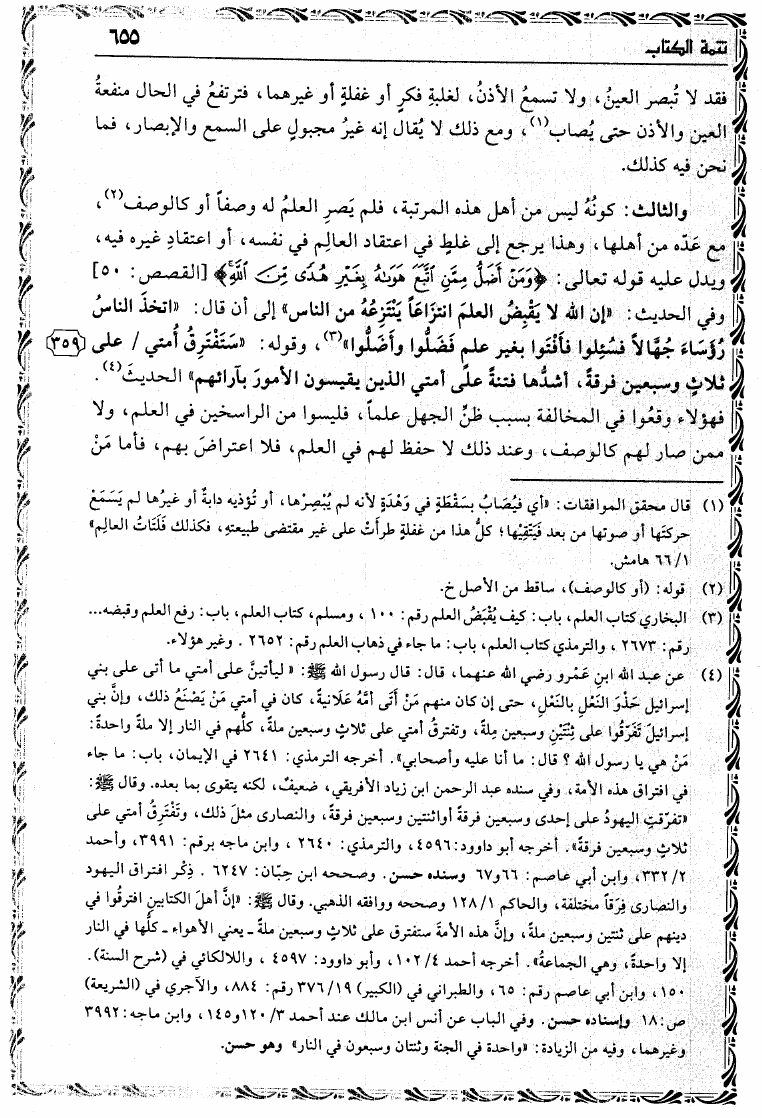 تتمة الكتاب ٦٥٥
فقد لا تُبصر العينُ، ولا تسمعُ الأذنُ، لغلبةِ فكرٍ أو غفلةٍ أو غيرهما، فترتفعُ في الحال منفعةُ
العين والأذن حتى يُصاب(١)، ومع ذلك لا يُقال إنه غيرُ مجبولٍ على السمع والإبصار، فما
نحن فيه كذلك.
والثالث: كونُهُ ليس من أهل هذه المرتبة، فلم يَصرِ العلمُ له وصفاً أو كالوصف(٢)،
مع عَدّه من أهلها، وهذا يرجع إلى غلطٍ في اعتقاد العالِم في نفسه، أو اعتقادِ غيره فيه،
ويدل عليه قوله تعالى: ﴿وَمَنْ أَضَلُّ مِمَّنِ ٱتَّبَعَ هَوَىٰهُ بِغَيْرِ هُدًى مِّنَ ٱللَّهِ﴾ [القصص: ٥٠]
وفي الحديث: «إن الله لا يَقْبِضُ العلمَ انتزَاعاً يَنْتَزِعُهُ من الناس» إلى أن قال: «اتخذَ الناسُ
رُؤَسَاءَ جُهَّالاً فسُئِلوا فأَفْتَوا بغير علمٍ فَضَلُّوا وأَضَلُّوا»(٣)، وقوله: «سَتَفْتَرِقُ أُمتي / على ٣٥٩
ثلاثٍ وسبعين فرقةً، أشدُّها فتنةً على أمتي الذين يقيسون الأمورَ بآرائهم» الحديثَ(٤).
فهؤلاء وقعُوا في المخالفة بسبب ظنِّ الجهل علماً، فليسوا من الراسخين في العلم، ولا
ممن صار لهم كالوصف، وعند ذلك لا حفظ لهم في العلم، فلا اعتراضَ بهم، فأما مَنْ
(١) قال محقق الموافقات: «أي فيُصَابُ بسَقْطَةٍ في وَهْدَةٍ لأنه لم يُبْصِرْها، أو تُؤذيه دابةٌ أو غيرُها لم يَسَمَعْ
حركتَها أو صوتها من بعد فَيَتَّقِيْها؛ كلُّ هذا من غفلةٍ طرأتْ على غير مقتضى طبيعتهِ، فكذلك فَلَتَاتُ العالِم»
٦٦/١ هامش.
(٢) قوله: (أو كالوصف)، ساقط من الأصل خ.
(٣) البخاري كتاب العلم، باب: كيف يُقْبَضُ العلم رقم: ١٠٠، ومسلم، كتاب العلم، باب: رفع العلم وقبضه...
رقم: ٢٦٧٣، والترمذي كتاب العلم، باب: ما جاء في ذهاب العلم رقم: ٢٦٥٢. وغير هؤلاء.
(٤) عن عبد الله ابنِ عَمْرو رضي الله عنهما، قال: قال رسول الله ﷺ: « ليأتينَّ على أمتي ما أتى على بني
إسرائيل حَذْوَ النَعْلِ بالنَعْلِ، حتى إن كان منهم مَنْ أَتَى أمَّهُ عَلَانيةً، كان في أمتي مَنْ يَصْنَعُ ذلك، وإنَّ بني
إسرائيلَ تَفَرَقُوا على ثِنْتَيْنِ وسبعين مِلةً، وتفترقُ أمتي على ثلاثٍ وسبعين ملةً، كلُّهم في النار إلا ملةً واحدةً:
مَنْ هي يا رسول الله ؟ قال: ما أنا عليه وأصحابي». أخرجه الترمذي: ٢٦٤١ في الإيمان، باب: ما جاء
في افتراق هذه الأمة، وفي سنده عبد الرحمن ابن زياد الأفريقي، ضعيفٌ، لكنه يتقوى بما بعده. وقال ﷺ:
«تفرّقتِ اليهودُ على إحدى وسبعين فرقةً أواثنتين وسبعين فرقةً، والنصارى مثلَ ذلك، وتَفْتَرِقُ أمتي على
ثلاثٍ وسبعين فرقةً». أخرجه أبو داوود: ٤٥٩٦، والترمذي: ٢٦٤٠، وابن ماجه برقم: ٣٩٩١، وأحمد
٣٣٢/٢، وابن أبي عاصم: ٦٦و٦٧ وسنده حسن. وصححه ابن حِبّان: ٦٢٤٧. ذِكْر افتراق اليهود
والنصارى فِرَقاً مختلفة، والحاكم ١٢٨/١ وصححه ووافقه الذهبي. وقال ﷺ: «إنَّ أهلَ الكتابين افترقُوا في
دينهم على ثنتين وسبعين ملةً، وإنَّ هذه الأمةَ ستفترق على ثلاثٍ وسبعين ملةً ـ يعني الأهواء ـ كلُّها في النار
إلا واحدةً، وهي الجماعةُ». أخرجه أحمد ١٠٢/٤، وأبو داوود: ٤٥٩٧، واللالكائي في (شرح السنة).
١٥٠، وابن أبي عاصم رقم: ٦٥، والطبراني في (الكبير) ٣٧٦/١٩ رقم: ٨٨٤، والآجري في (الشريعة)
ص: ١٨ وإسناده حسن. وفي الباب عن أنس ابن مالك عند أحمد ١٢٠/٣و١٤٥، وابن ماجه: ٣٩٩٢
وغيرهما، وفيه من الزيادة: «واحدة في الجنة وثنتان وسبعون في النار» وهو حسن.